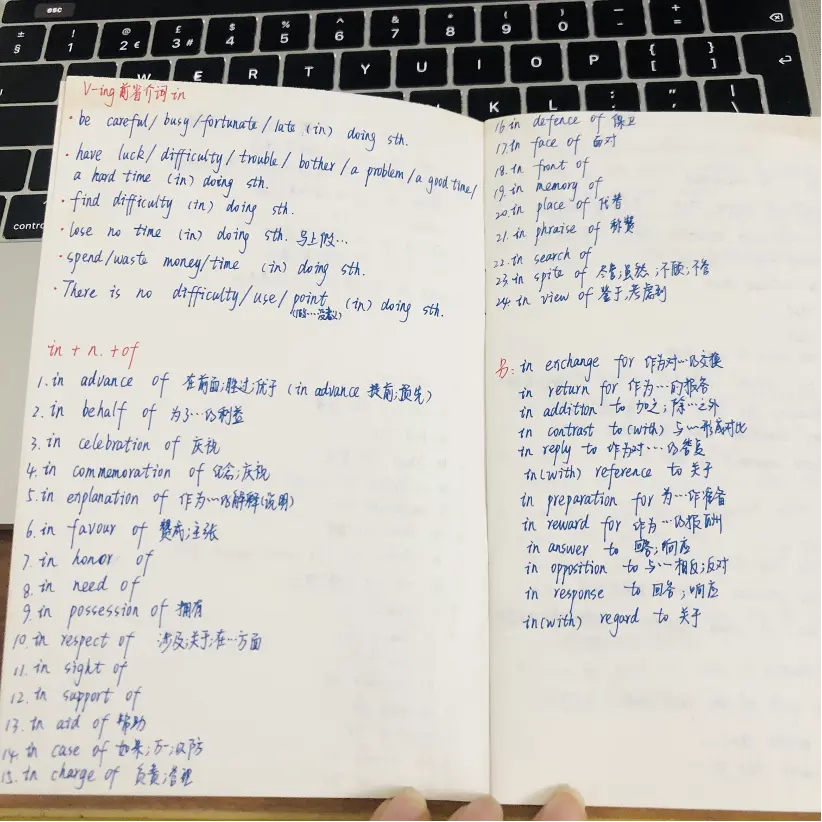 esc
± § ! 1 @ 2 € £ 3 # $ 4 % 5 ^ 6 & 7 * 8 ( 9 ) 0 — - + =
W E R T Y U I O P { [ } ]
K L : ; " ' | \
contro
V-ing前省介词in
· be careful/busy/fortunate/late (in) doing sth.
· have luck/difficulty/trouble/bother/a problem/a good time/
a hard time (in) doing sth.
· find difficulty (in) doing sth.
· lose no time (in) doing sth. 马上做…
· spend/waste money/time (in) doing sth.
· There is no difficulty/use/point (in) doing sth.
in + n. + of
1. in advance of 在前面;胜过;优于 (in advance 提前;预先)
2. in behalf of 为了…的利益
3. in celebration of 庆祝
4. in commemoration of 纪念;庆祝
5. in explanation of 作为…的解释(说明)
6. in favour of 赞成;主张
7. in honor of
8. in need of
9. in possession of 拥有
10. in respect of 涉及;关于;在…方面
11. in sight of
12. in support of
13. in aid of 帮助
14. in case of 如果;万一;以防
15. in charge of 负责;管理
16 in defence of 保卫
17. in face of 面对
18. in front of
19. in memory of
20. in place of 代替
21. in phraise of 称赞
22. in search of
23. in spite of 尽管;虽然;不顾;不管
24. in view of 鉴于;考虑到
另: in exchange for 作为对…的交换
in return for 作为…的报答
in addition to 加之;除…之外
in contrast to(with) 与…形成对比
in reply to 作为对…的答复
in(with) reference to 关于
in preparation for 为…作准备
in reward for 作为…的报酬
in answer to 回答;响应
in opposition to 与…相反;反对
in response to 回答;响应
in(with) regard to 关于